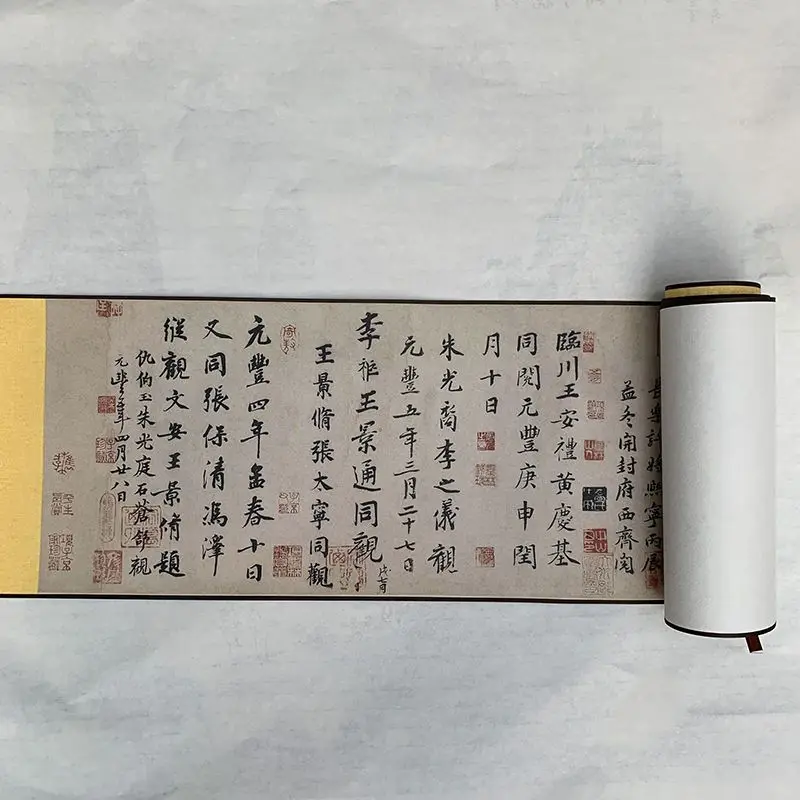 長樂許將熙寧丙辰
孟冬開封府西齋閱
臨川王安禮黃慶基
同閱元豐庚申閏
月十日
朱光裔李之儀觀
元豐五年三月二十七日
李秬王景通同觀
王景脩張太寧同觀
元豐四年孟春十日
又同張保清馮澤
縱觀文安王景脩題
仇伯玉朱光庭石蒼舒觀
元豐五年四月廿八日